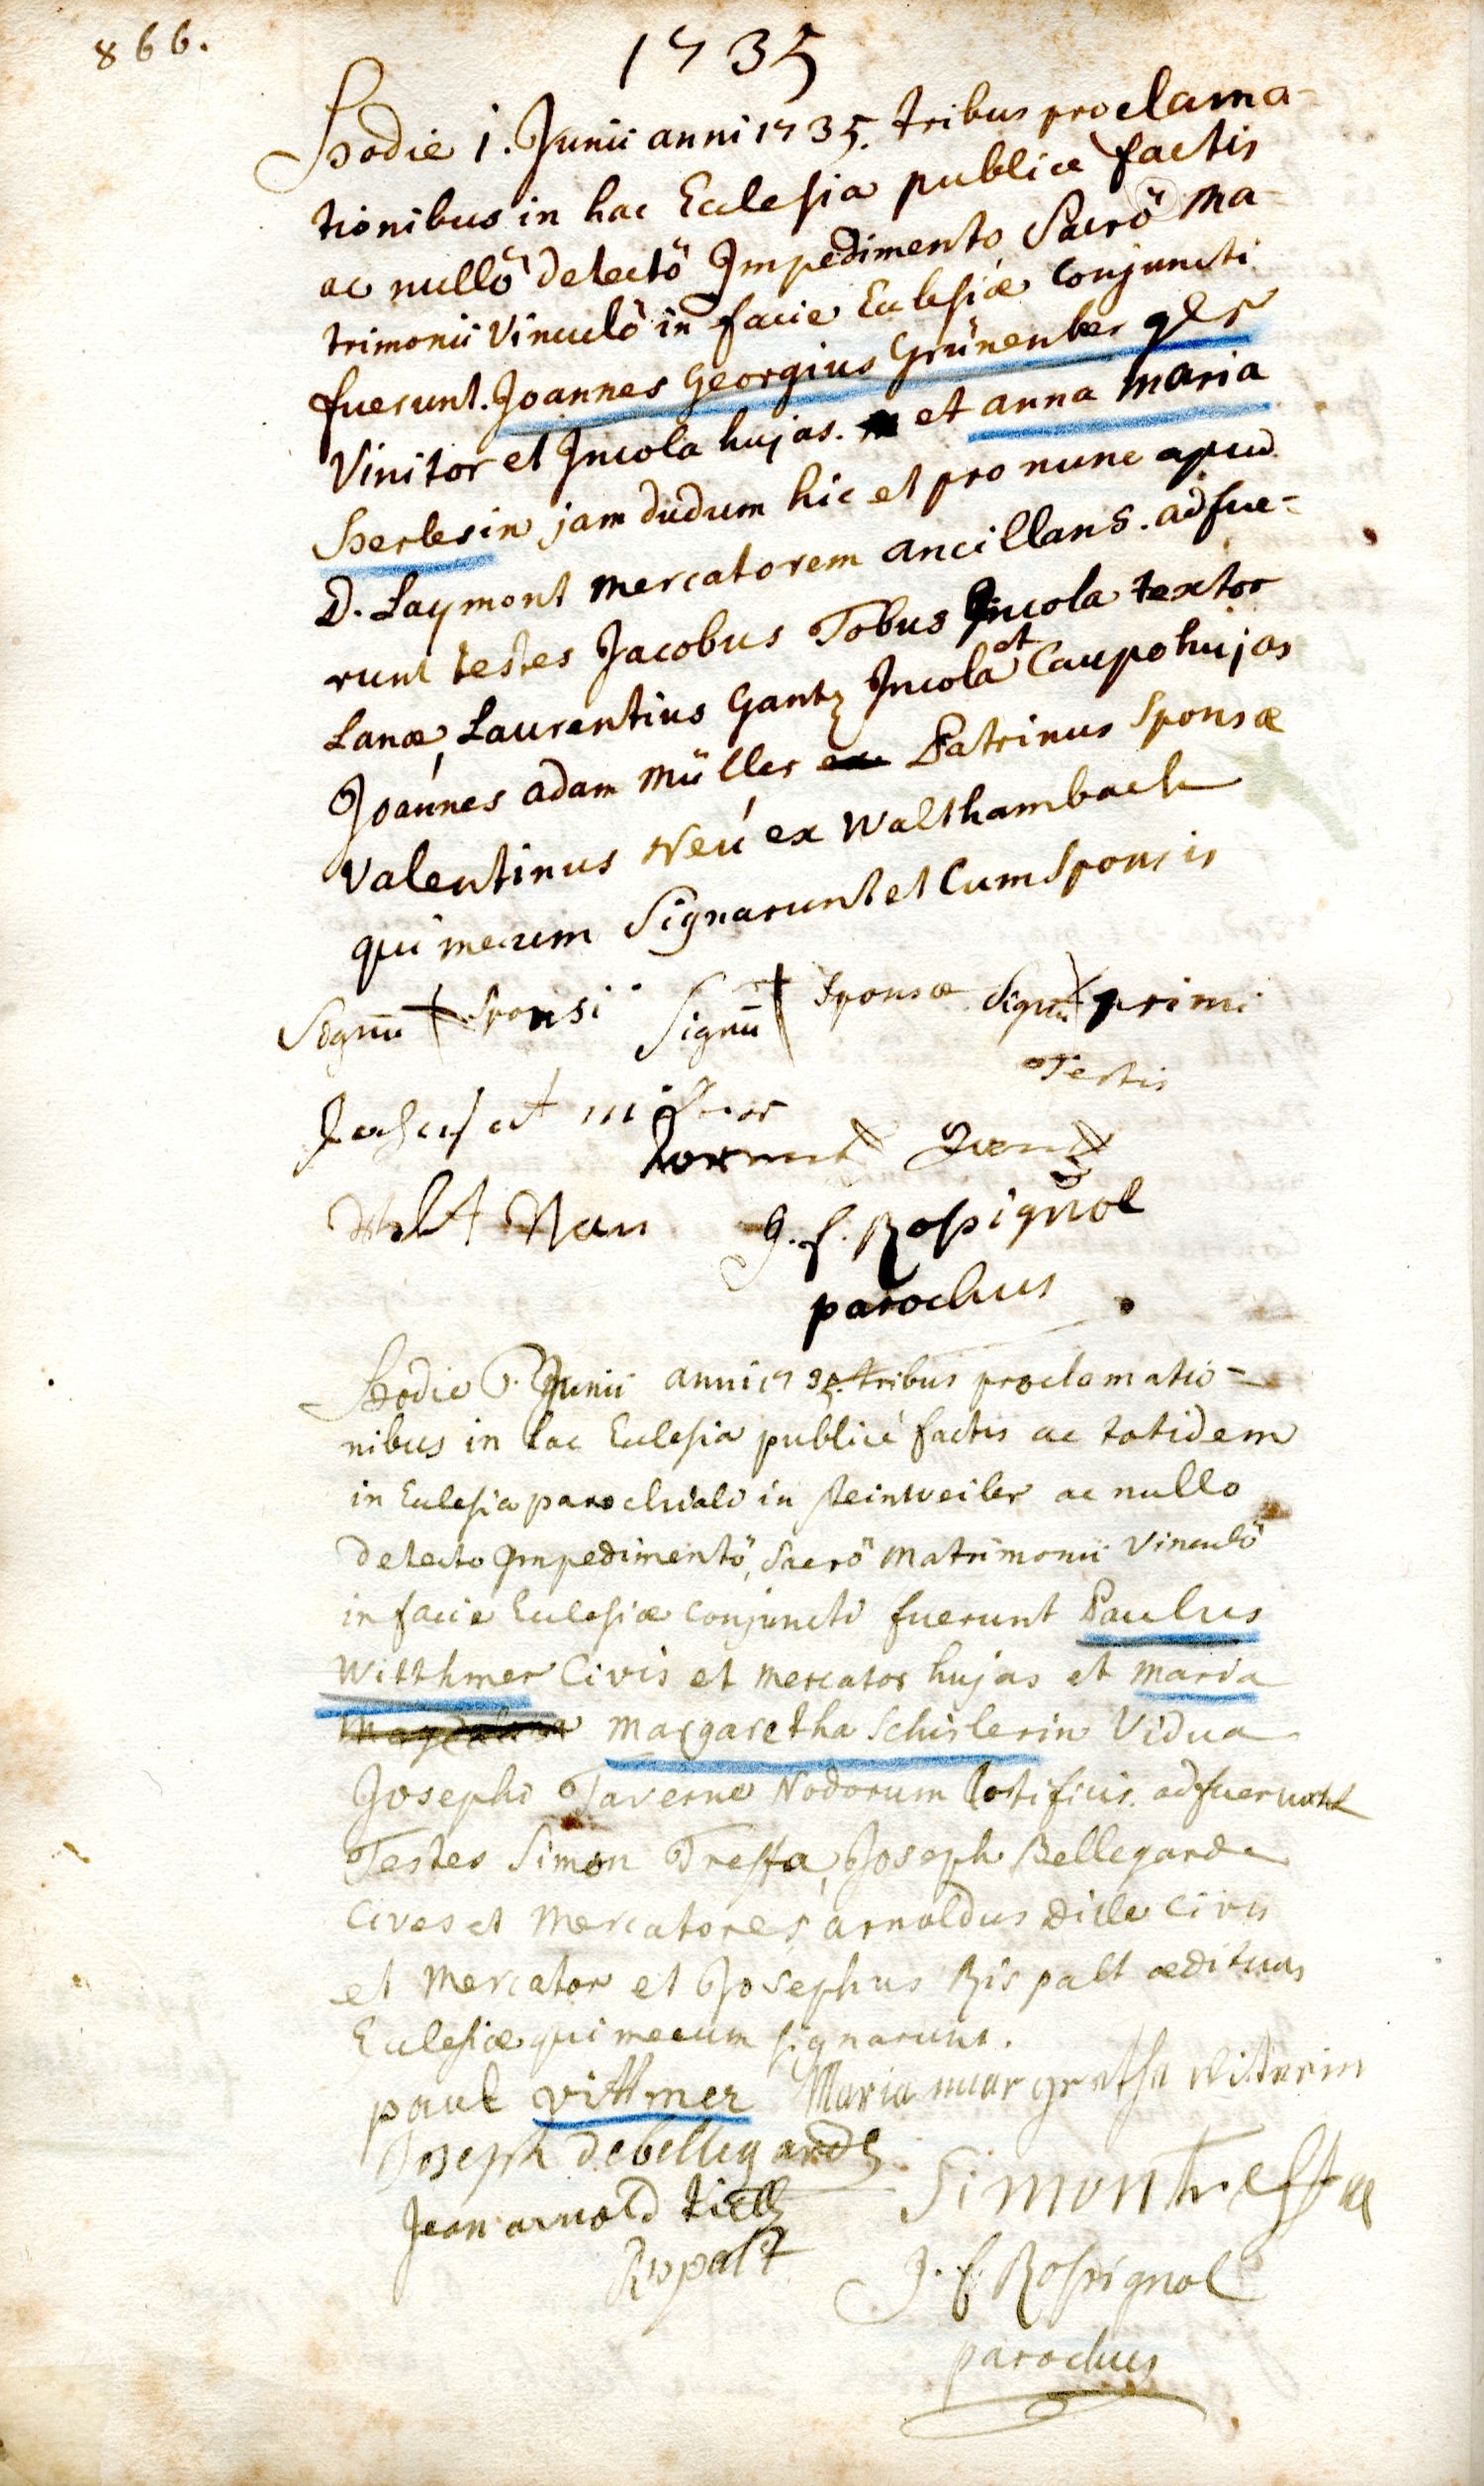 866.
1735
Hodie 1. Junii anni 1735. tribus proclama-
tionibus in hac Ecclesia publicè factis
ac nullô detectô Impedimento Sacrô Ma-
trimonii Vinculô in facie Ecclesiæ Conjuncti
fuerunt. Joannes Georgius Grünenber
Vinitor et Incola hujas. et anna Maria
Herlesin jam dudum hic et pro nunc apud
D. Laymont Mercatorem ancillans. adfue-
runt testes Jacobus Tobus Incola textor
Lanæ, Laurentius Gantz Incola et Caupo hujas
Joannes adam Müller Patrinus Sponsæ
Valentinus Neu ex Walthambach
qui mecum Signarunt et Cum Sponsis
Signū Sponsi Signū Sponsæ Signū primi
Testis
Nau
J. f. Rossignol
parochus
Hodie Junii anni 1735. tribus proclamatio-
nibus in hac Ecclesia publicè factis ac totidem
in Ecclesia parochiali in Steinweiler ac nullo
detecto Impedimentô, Sacrô Matrimonii Vinculô
in facie Ecclesiæ Conjuncti fuerunt Paulus
Witthmer Civis et Mercator hujas et Maria
Magdalena Margaretha Schislerin Vidua
Josephi Taverne Nodorum adfuerunt
Testes Simon Tresta, Joseph Bellegarde
Cives et Mercatores, arnoldus Dille Civis
et Mercator et Josephus Rispalt ædituus
Ecclesiæ qui mecum signarunt.
paul vittmer Maria mar gretha Witterin
Joseph debellegarde
Simon tresta
Jean arnold
Rispalt
J. f. Rossignol
parochus